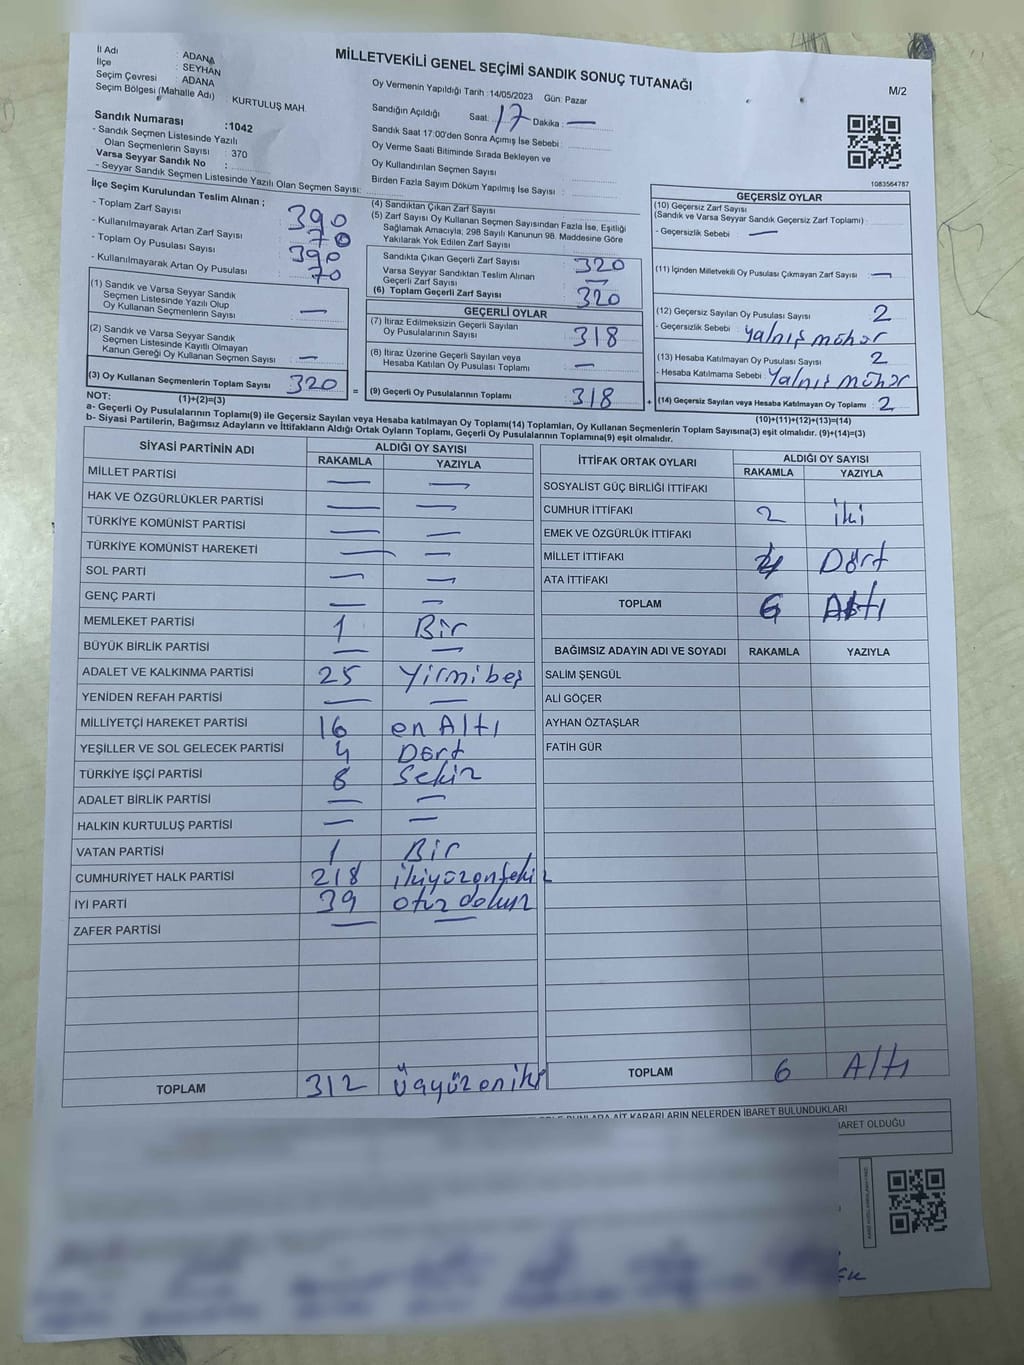 MİLLETVEKİLİ GENEL SEÇİMİ SANDIK SONUÇ TUTANAĞI
M/2
İl Adı : ADANA
İlçe : SEYHAN
Seçim Çevresi : ADANA
Seçim Bölgesi (Mahalle Adı) : KURTULUŞ MAH.
Sandık Numarası :1042
- Sandık Seçmen Listesinde Yazılı
Olan Seçmenlerin Sayısı : 370
Varsa Seyyar Sandık No :
- Seyyar Sandık Seçmen Listesinde Yazılı Olan Seçmen Sayısı:
Oy Vermenin Yapıldığı Tarih :14/05/2023 Gün: Pazar
Sandığın Açıldığı Saat: 17 Dakika: —
Sandık Saat 17:00'den Sonra Açımış İse Sebebi :
Oy Verme Saati Bitiminde Sırada Bekleyen ve
Oy Kullandırılan Seçmen Sayısı :
Birden Fazla Sayım Döküm Yapılmış İse Sayısı :
1083564787
İlçe Seçim Kurulundan Teslim Alınan ;
- Toplam Zarf Sayısı : 390
- Kullanılmayarak Artan Zarf Sayısı : 70
- Toplam Oy Pusulası Sayısı : 390
- Kullanılmayarak Artan Oy Pusulası : 70
(1) Sandık ve Varsa Seyyar Sandık
Seçmen Listesinde Yazılı Olup
Oy Kullanan Seçmenlerin Sayısı : —
(2) Sandık ve Varsa Seyyar Sandık
Seçmen Listesinde Kayıtlı Olmayan
Kanun Gereği Oy Kullanan Seçmen Sayısı : —
(3) Oy Kullanan Seçmenlerin Toplam Sayısı : 320 =
(4) Sandıktan Çıkan Zarf Sayısı :
(5) Zarf Sayısı Oy Kullanan Seçmen Sayısından Fazla İse, Eşitliği
Sağlamak Amacıyla, 298 Sayılı Kanunun 98. Maddesine Göre
Yakılarak Yok Edilen Zarf Sayısı :
Sandıkta Çıkan Geçerli Zarf Sayısı : 320
Varsa Seyyar Sandıktan Teslim Alınan
Geçerli Zarf Sayısı : —
(6) Toplam Geçerli Zarf Sayısı : 320
GEÇERLİ OYLAR
(7) İtiraz Edilmeksizin Geçerli Sayılan
Oy Pusulalarının Sayısı : 318
(8) İtiraz Üzerine Geçerli Sayılan veya
Hesaba Katılan Oy Pusulası Toplamı : —
(9) Geçerli Oy Pusulalarının Toplamı : 318 +
GEÇERSİZ OYLAR
(10) Geçersiz Zarf Sayısı
(Sandık ve Varsa Seyyar Sandık Geçersiz Zarf Toplamı) :
- Geçersizlik Sebebi : —
(11) İçinden Milletvekili Oy Pusulası Çıkmayan Zarf Sayısı : —
(12) Geçersiz Sayılan Oy Pusulası Sayısı : 2
- Geçersizlik Sebebi : Yalnış möhör
(13) Hesaba Katılmayan Oy Pusulası Sayısı : 2
- Hesaba Katılmama Sebebi : Yalnış möhör
(14) Geçersiz Sayılan veya Hesaba Katılmayan Oy Toplamı : 2
NOT: (1)+(2)=(3)
(10)+(11)+(12)+(13)=(14)
a- Geçerli Oy Pusulalarının Toplamı(9) ile Geçersiz Sayılan veya Hesaba katılmayan Oy Toplamı(14) Toplamları, Oy Kullanan Seçmenlerin Toplam Sayısına(3) eşit olmalıdır. (9)+(14)=(3)
b- Siyasi Partilerin, Bağımsız Adayların ve İttifakların Aldığı Ortak Oyların Toplamı, Geçerli Oy Pusulalarının Toplamına(9) eşit olmalıdır.
SİYASİ PARTİNİN ADI ALDIĞI OY SAYISI
RAKAMLA YAZIYLA
MİLLET PARTİSİ — —
HAK VE ÖZGÜRLÜKLER PARTİSİ — —
TÜRKİYE KOMÜNİST PARTİSİ — —
TÜRKİYE KOMÜNİST HAREKETİ — —
SOL PARTİ — —
GENÇ PARTİ — —
MEMLEKET PARTİSİ 1 Bir
BÜYÜK BİRLİK PARTİSİ — —
ADALET VE KALKINMA PARTİSİ 25 Yirmibeş
YENİDEN REFAH PARTİSİ — —
MİLLİYETÇİ HAREKET PARTİSİ 16 on Altı
YEŞİLLER VE SOL GELECEK PARTİSİ 4 Dört
TÜRKİYE İŞÇİ PARTİSİ 8 Sekiz
ADALET BİRLİK PARTİSİ — —
HALKIN KURTULUŞ PARTİSİ — —
VATAN PARTİSİ 1 Bir
CUMHURİYET HALK PARTİSİ 218 ikiyüzonsekiz
İYİ PARTİ 39 otuz dokuz
ZAFER PARTİSİ — —
TOPLAM 312 Üçyüzoniki
İTTİFAK ORTAK OYLARI ALDIĞI OY SAYISI
RAKAMLA YAZIYLA
SOSYALİST GÜÇ BİRLİĞİ İTTİFAKI
CUMHUR İTTİFAKI 2 iki
EMEK VE ÖZGÜRLÜK İTTİFAKI
MİLLET İTTİFAKI 4 Dört
ATA İTTİFAKI
TOPLAM 6 Altı
BAĞIMSIZ ADAYIN ADI VE SOYADI RAKAMLA YAZIYLA
SALİM ŞENGÜL
ALİ GÖÇER
AYHAN ÖZTAŞLAR
FATİH GÜR
TOPLAM 6 Altı
KARARLARIN NELERDEN İBARET BULUNDUKLARI
İBARET OLDUĞU